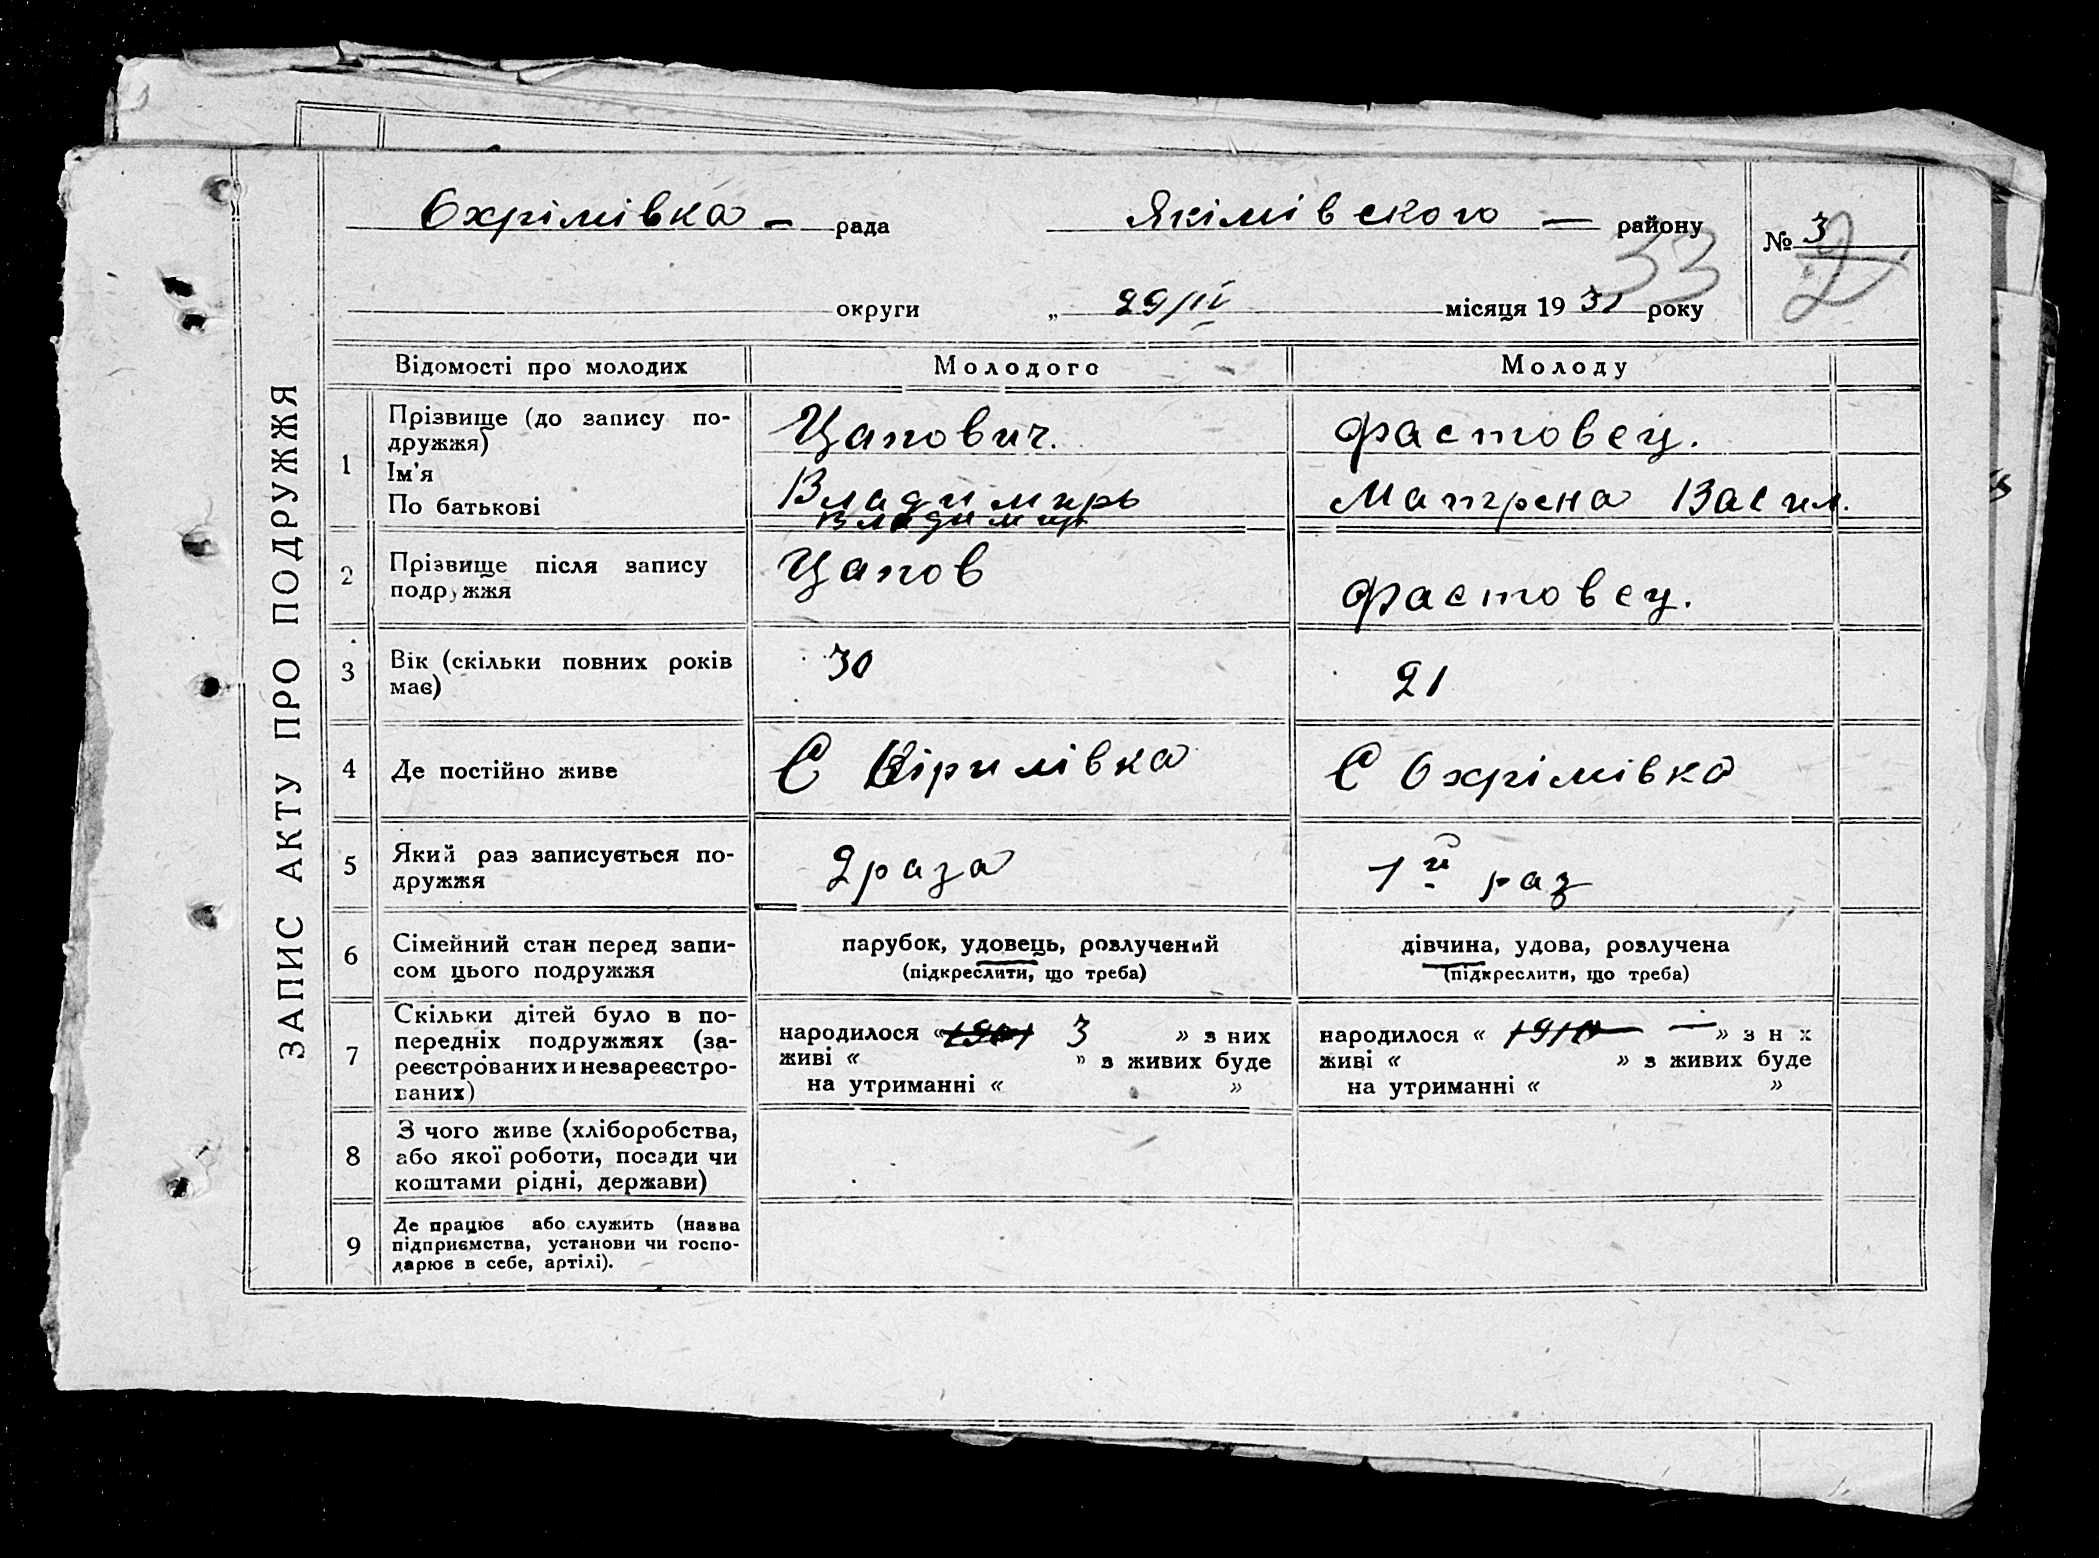 Охрімівка – рада Якімівского – району № 3
33 2
округи „ 29/IV місяця 1931 року
ЗАПИС АКТУ ПРО ПОДРУЖЖЯ
Відомості про молодих Молодого Молоду
1 Прізвище (до запису по-
дружжя) Цапович. Фастовец.
Ім'я
По батькові Владимирь Матрена Васил.
Владимир
2 Прізвище після запису
подружжя Цапов Фастовец.
3 Вік (скільки повних років
має) 30 21
4 Де постійно живе С Кірилівка С Охрімівка
5 Який раз записується по-
дружжя 2 раза 1й раз
6 Сімейний стан перед запи-
сом цього подружжя парубок, удовець, розлучений дівчина, удова, розлучена
(підкреслити, що треба) (підкреслити, що треба)
7 Скільки дітей було в по-
передніх подружжях (за-
реєстрованих и незареєстро-
ваних)
народилося «1901 3 » з них
живі « » з живих буде
на утриманні « »
народилося « 1910 — » з н х
живі « » з живих буде
на утриманні « »
8 З чого живе (хліборобства,
або якої роботи, посади чи
коштами рідні, держави)
9 Де працює або служить (назва
підприємства, установи чи госпо-
дарює в себе, артілі).